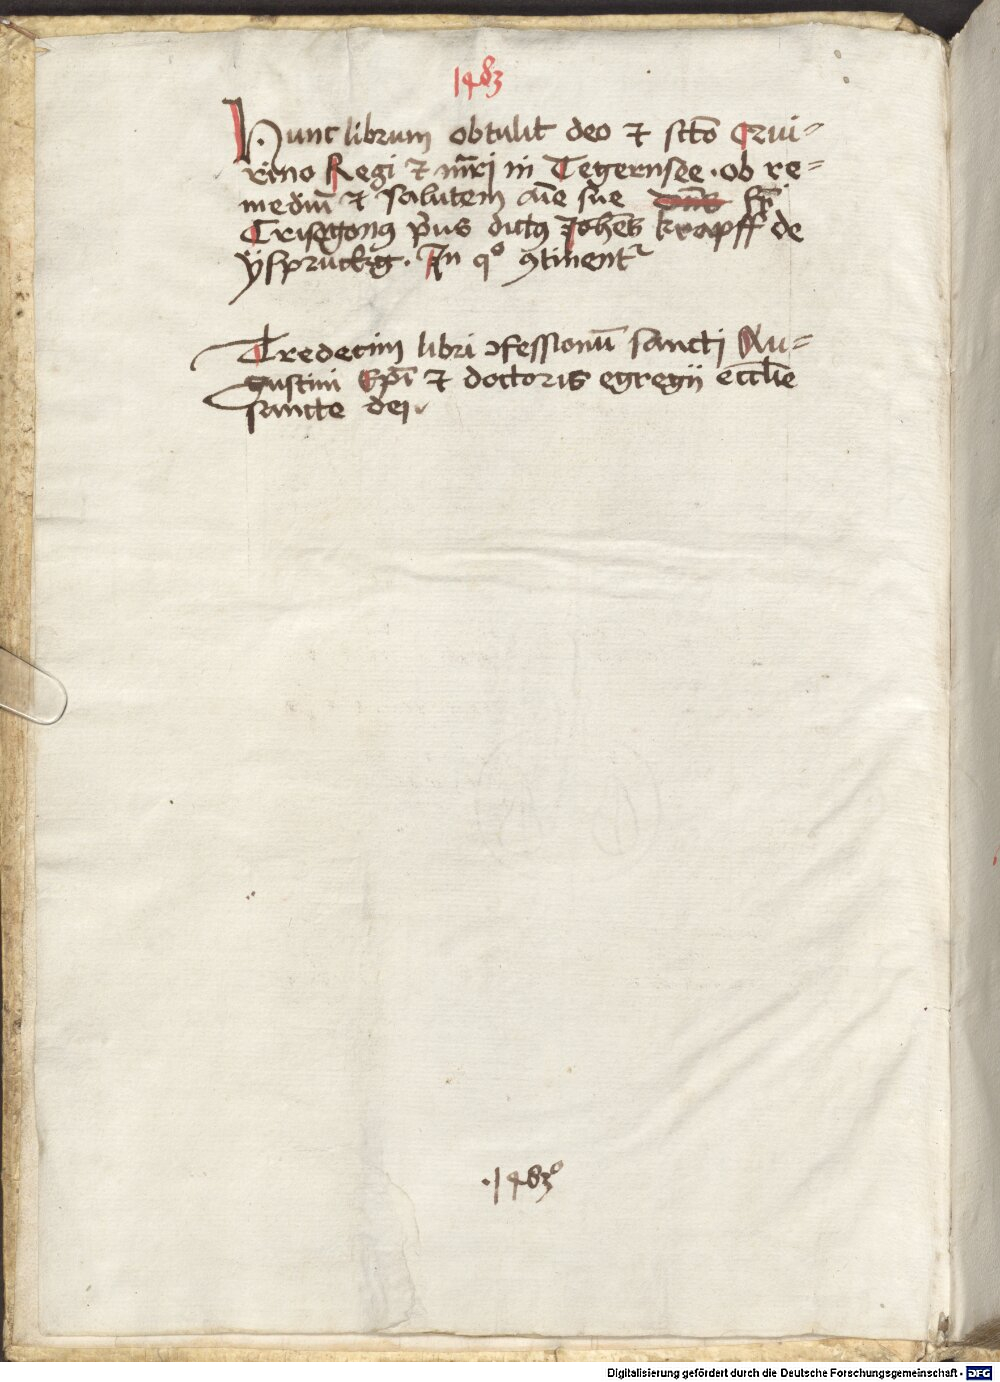 1483
Hunc librum obtulit deo et sc̄to Qrui=
rino Regi et mr̄i in Tegernsee · ob re=
mediū et salutem aīe sue
Crisogonꝰ pͥus dictꝰ Johēs krapff de
ÿspruckg · In qͦ ꝯtinentᷣ
Tredecim libri ꝯfessionū sancti Au=
gustini Ep̄i et doctoris egregij eccl̄ie
sancte dei
· 1483º
Digitalisierung gefördert durch die Deutsche Forschungsgemeinschaft - DFG